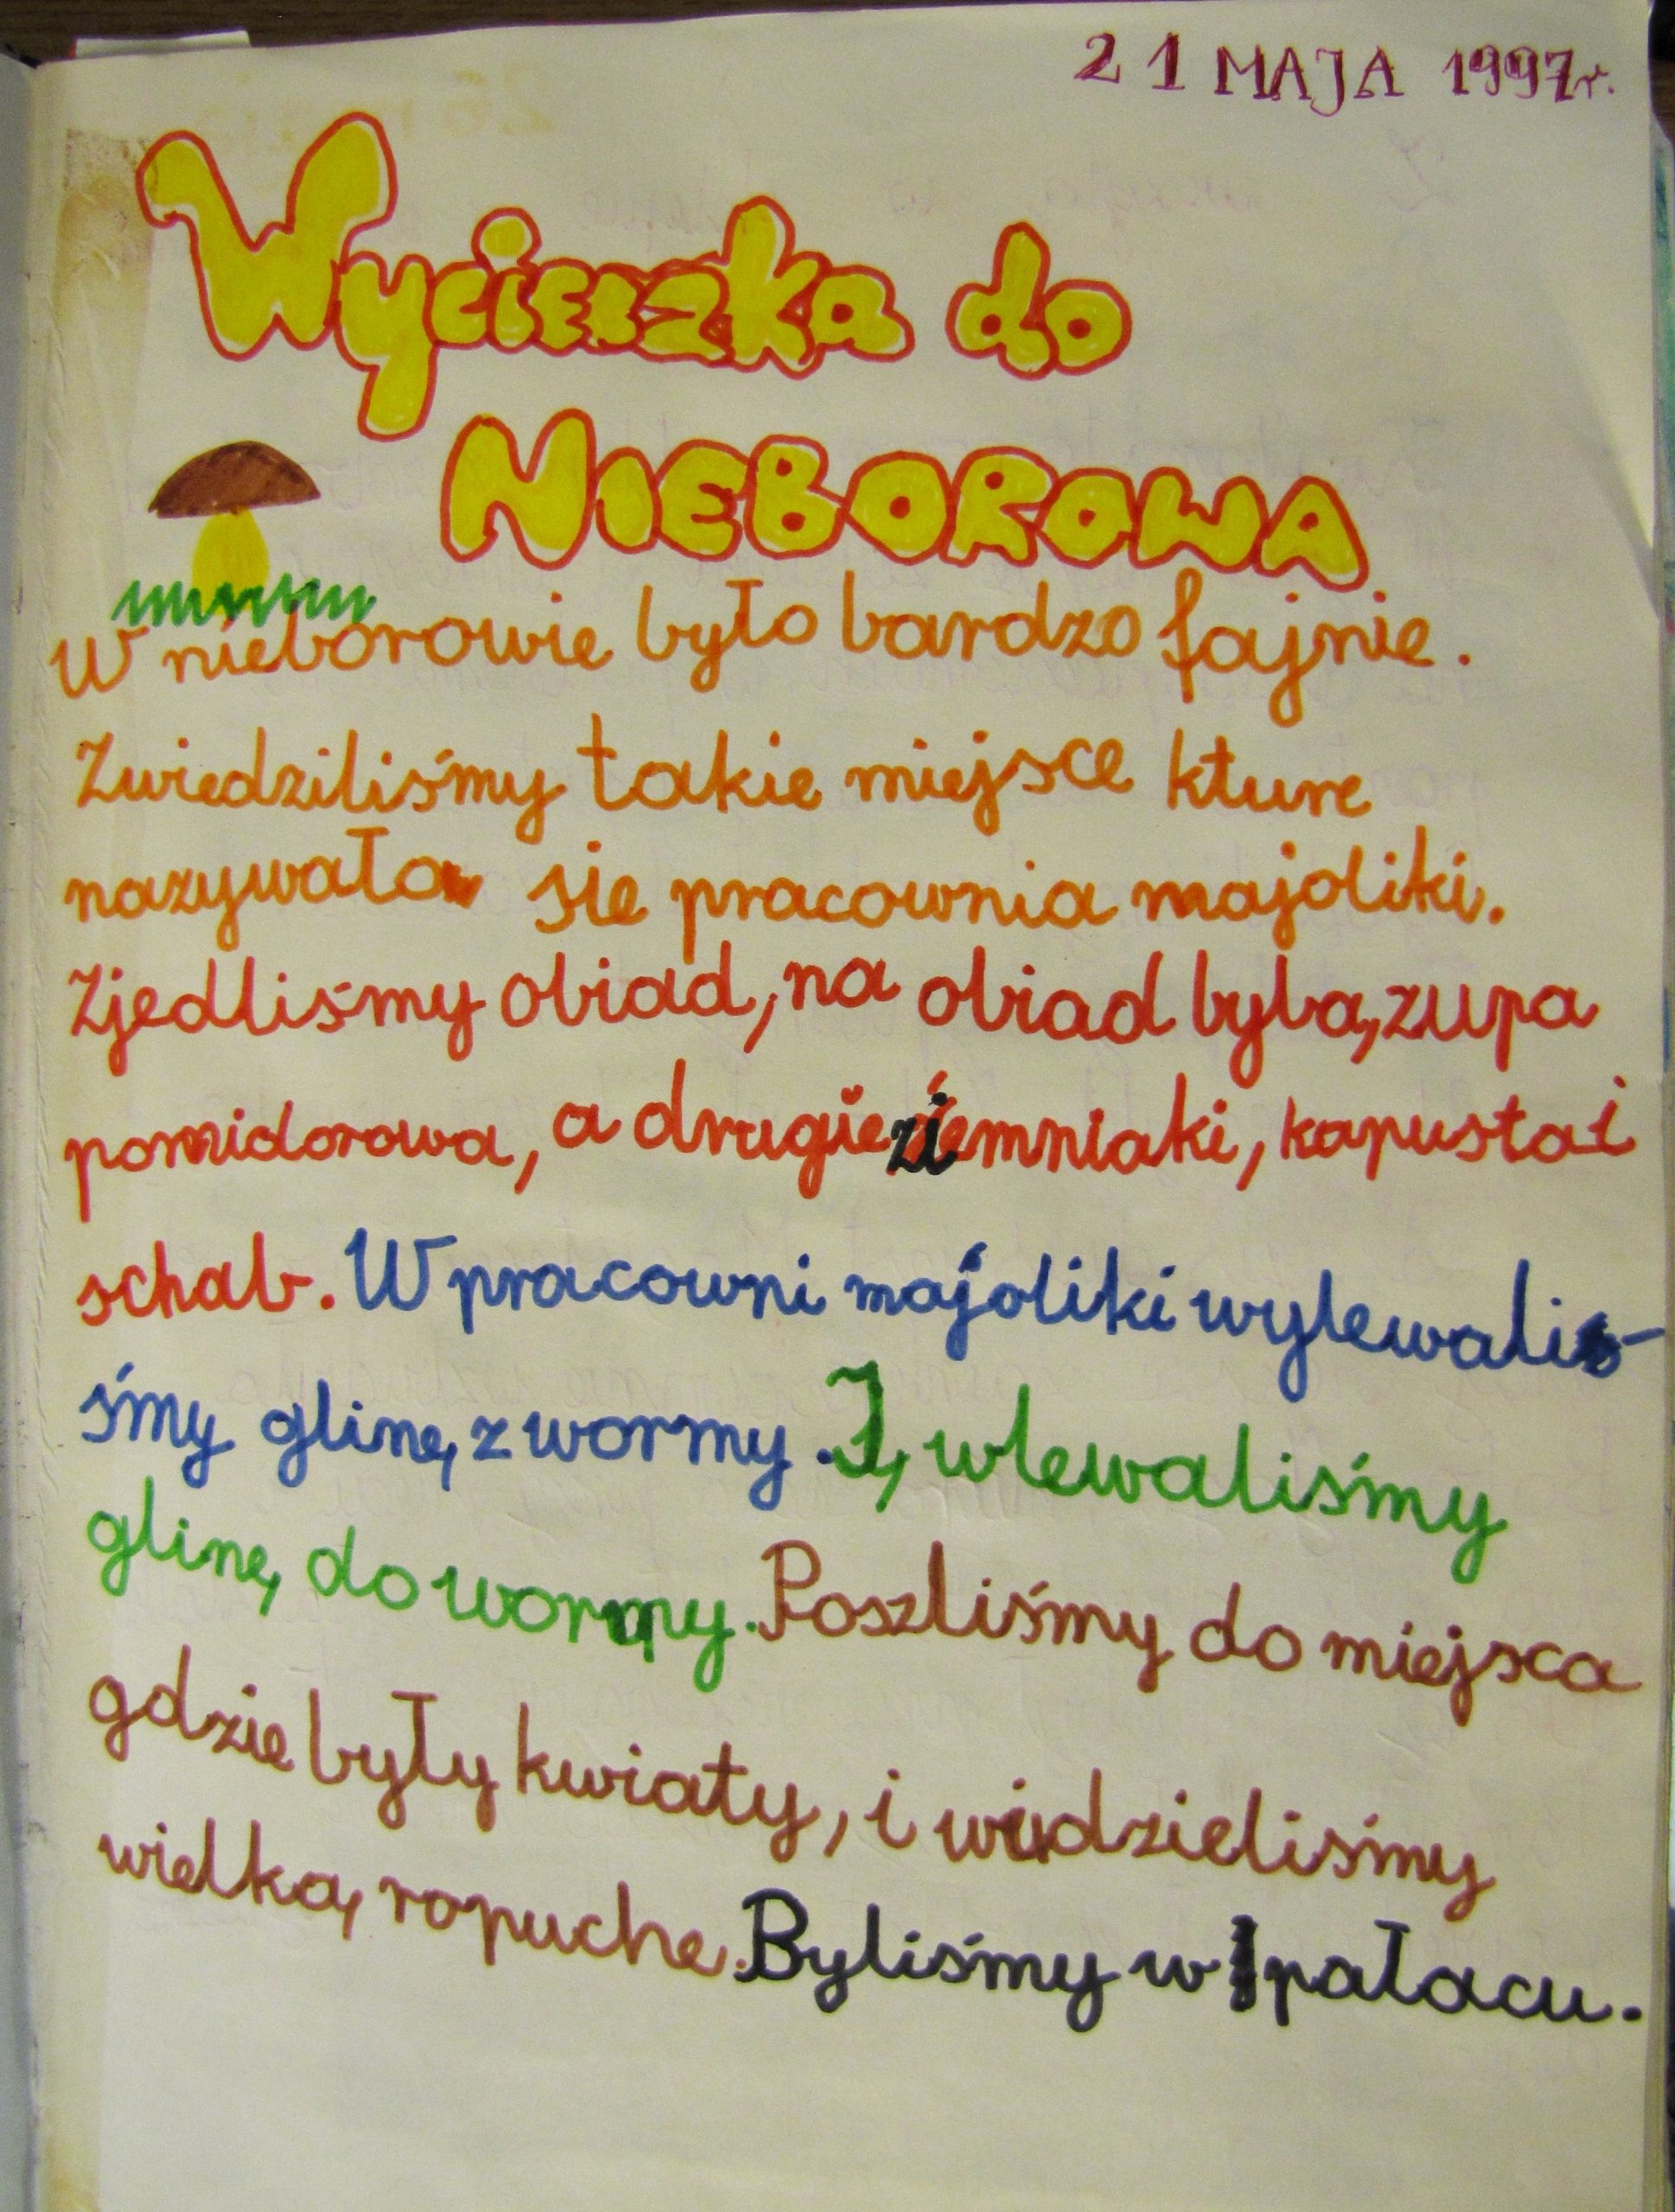 21 MAJA 1997r.
Wycieczka do
NIEBOROWA
W nieborowie było bardzo fajnie.
Zwiedziliśmy takie miejsce kture
nazywało sie pracownia majoliki.
Zjedliśmy obiad, na obiad była, zupa
pomidorowa, a drugie ziemniaki, kapusta i
schab. W pracowni majoliki wylewali-
śmy glinę z wormy. I, wlewaliśmy
glinę do wormy. Poszliśmy do miejsca
gdzie były kwiaty, i widzieliśmy
wielką ropuche. Byliśmy w pałacu.